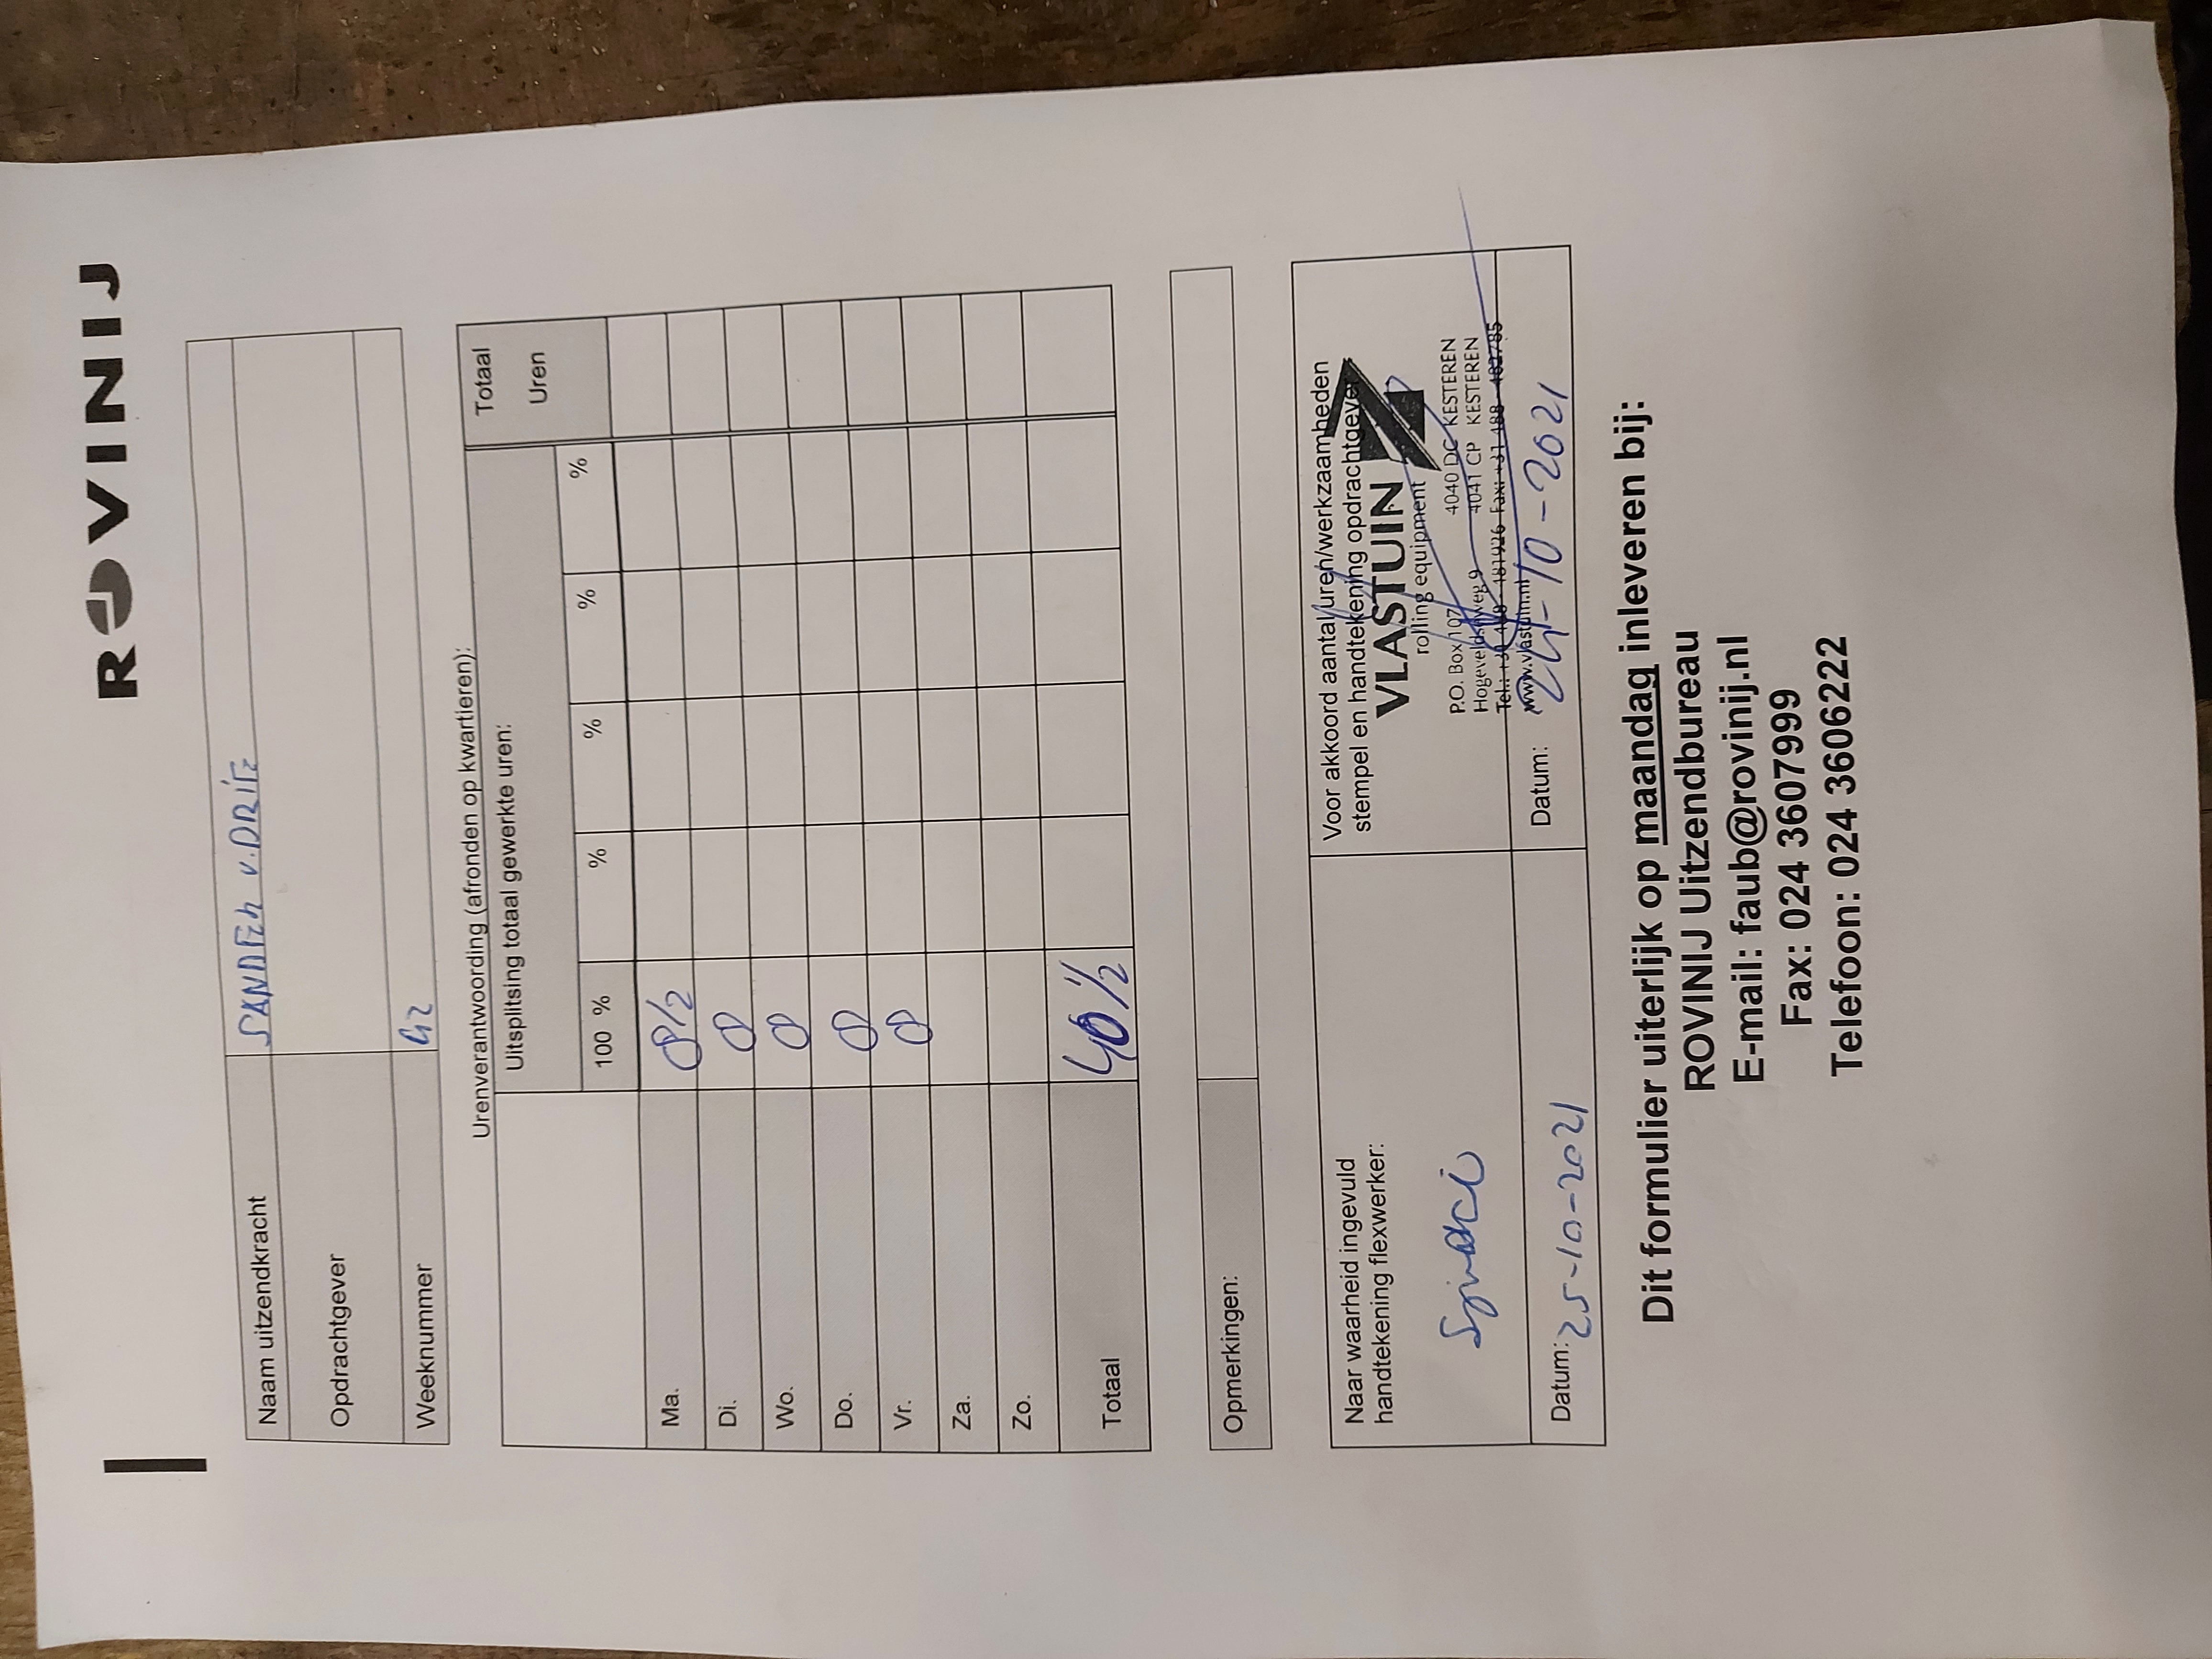 ROVINIJ
Naam uitzendkracht SANDER v. DRIE
Opdrachtgever
Weeknummer 42
Urenverantwoording (afronden op kwartieren):
Uitsplitsing totaal gewerkte uren: Totaal Uren
100 % % % % %
Ma. 8/2
Di. 8
Wo. 8
Do. 8
Vr. 8
Za.
Zo.
Totaal 40 1/2
Opmerkingen:
Naar waarheid ingevuld
handtekening flexwerker:
Voor akkoord aantal uren/werkzaamheden
stempel en handtekening opdrachtgever
VLASTUIN
rolling equipment
P.O. Box 107 4040 DC KESTEREN
Hogeveldseweg 9 4041 CP KESTEREN
Tel.: +31 488 - 481926 Fax: +31 488 - 482785
www.vlastuin.nl
Datum: 25-10-2021
Datum: 24-10-2021
Dit formulier uiterlijk op maandag inleveren bij:
ROVINIJ Uitzendbureau
E-mail: faub@rovinij.nl
Fax: 024 3607999
Telefoon: 024 3606222